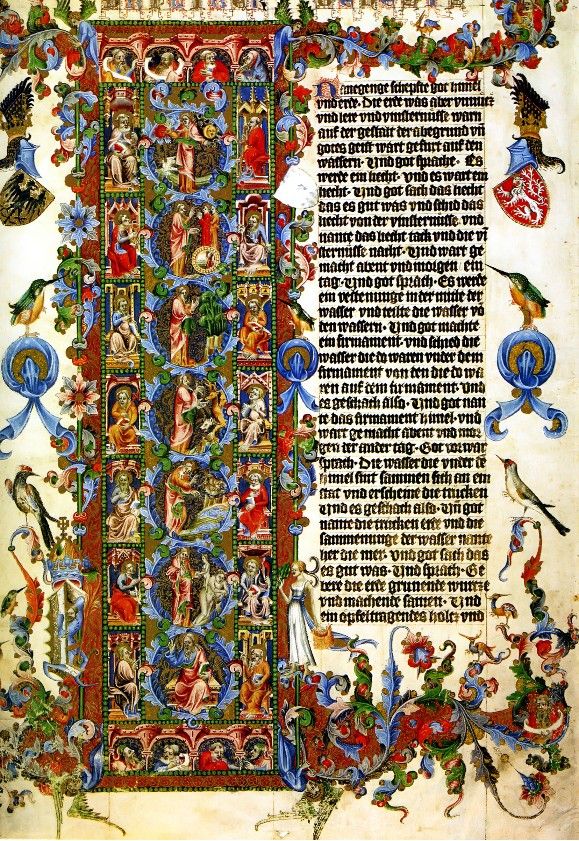 Nnegenge schepfte got himel
vnd erde · Die erde was aber vnnucz
vnd lere vnd vinsternisse warn
auf der gestalt der abegrund vn̄
gotes geist wart gefurt auf den
wassern · Vnd got sprache · Es
werde ein liecht · Vnd es wart ein
liecht · Vnd got sach das liecht
das es gut was vnd schid das
liecht von der vinsternisse · vnd
nante das liecht tack vnd die vi
sternisse nacht · Vnd wart ge
macht abent vnd morgen ein
tag · Vnd got sprach · Es werde
ein vestenunge in der mitte der
wasser vnd teilte die wasser vō
den wassern · Vnd got machte
ein firmament · vnd schied die
wasser die do waren vnder dem
firmament von den die do wa
ren auf dem firmament · Vnd
es geschach also · Vnd got nan
te das firmament himel · vnd
wart gemacht abent vnd mor
gen der ander tag · Got vorwar
sprach · Die wasser die vnder dē
himel sint sammen sich an ein
stat vnd erscheine die trucken
Vnd es geschach also · Vn̄ got
nante die trucken erde vnd die
sammenunge der wasser nante
her die mer · Vnd got sach das
es gut was · Vnd sprach · Ge
bere die erde grunende wurcze
vnd machende samen · Vnd
ein opfeltragendes holcz vnd